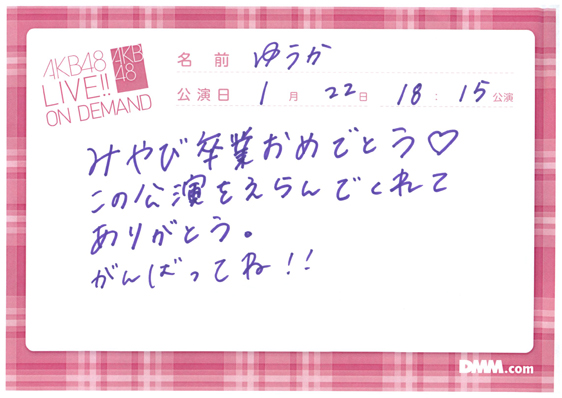 AKB48
LIVE!!
ON DEMAND
AKB
48
名前 ゆうか
公演日 1月 22日 18:15公演
みやび卒業おめでとう♡
この公演をえらんでくれて
ありがとう。
がんばってね!!
DMM.com